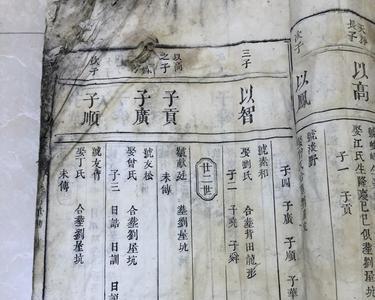 長子
以高
娶江氏
子一 子貢
次子
以鳳
子四 子廣 子順 子華
三子
以智
號素和
娶劉氏 合葬背田龍形
子二 子堯 子舜
廿二世
以高
之子
子貢
號献廷 葬劉屋坑
未傳
子廣
號友松
娶曾氏 合葬劉屋坑
子三 日誥 日訓
次子
子順
號友
娶丁氏 合葬劉屋坑
未傳